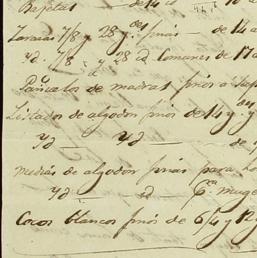 Bejetas — de 14 a
Zarazas 7/8 y 28 y.des finas — de 14 a
yd. 7/8 " y 28 id comunes de 17 a
Pañuelos de madras finos a
Listados de algodon finos de 14 y. y
yd — yd — de
medias de algodon finas para ho
yd — id — p.ra muge
Cocos blancos finos de 6/4 y 12 y